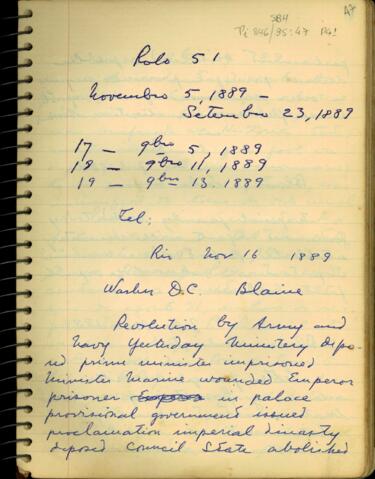 47
SBH
Pi 346/95:47 P61
Rolo 51
Novembro 5, 1889 –
Setembro 23, 1889
17 – 9bro 5, 1889
18 – 9bro 11, 1889
19 – 9bro 13. 1889
Tel:
Rio Nov 16 1889
Washn D.C. Blaine
Revolution by Army and
Navy Yesterday Ministery depo
ed prime minister imprisoned
Minister Marine wounded Emperor
prisoner in palace
provisional government issued
proclamation imperial dinasty
deposed Council State abolished